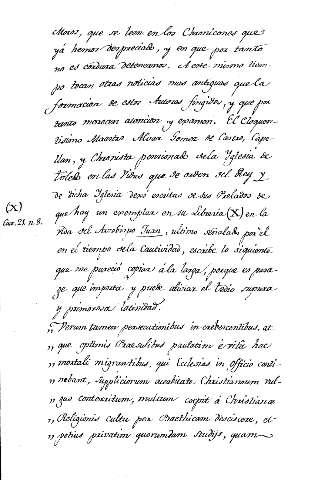 Moros, que se leen en los Chronicones que
yá hemos despreciado, y en que por tanto
no es cordura detenernos. A este mismo tiem-
po tocan otras noticias mas antiguas que la
formacion de estos Autores fingidos, y que por
tanto merecen atencion y examen. El Eloquen-
tisimo Maestro Alvar Gomez de Castro, Cape-
llan, y Chronista pensionado de la Yglesia de
Toledo en las Vidas que de orden del Rey y
de dicha Yglesia dexó escritas de sus Prelados de
que hay un exemplar en su Libreria (X) en la
(X)
Cax. 21. n. 8.
vida del Arzobispo Juan, ultimo señalado por él
en el tiempo de la Cautividad, escribe lo siguiente
que me pareció copiar á la larga, porque es pasa-
ge que importa y puede aliviar el tedio su pura
y primorosa latinidad.
„ Verum tamen persecutionibus in crebrescentibus, at
„ que optimis Praesulibus paulatim è vita hac
„ mortali migrantibus, qui Ecclesias in officio conti-
„ nebant, suppliciorum acerbitate Christianum vul-
„ gus conterritum, multum coepit à Christianae
„ Religionis cultu per Baethicam desciscere, et
„ potius privatim quorumdam studijs, quam